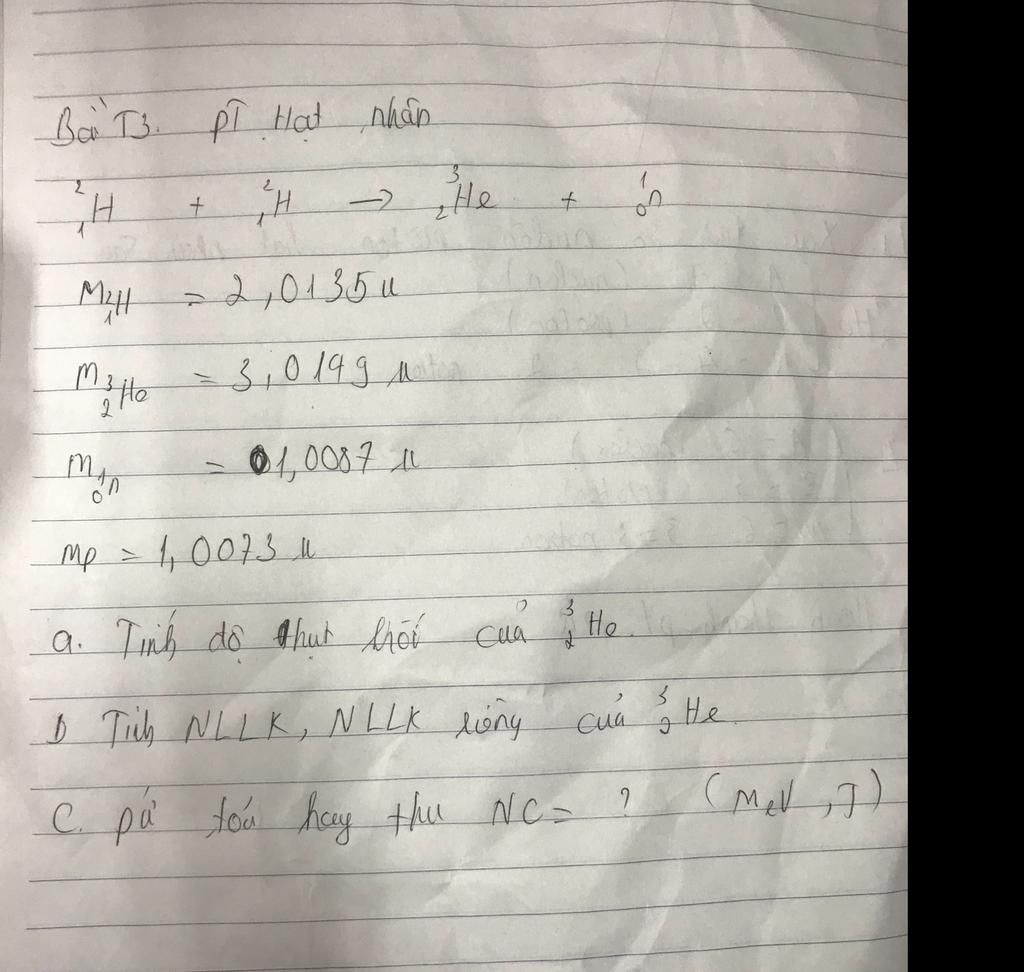 Bài T3. PT Hạt nhân
²₁H + ²₁H → ³₂He + ¹₀n
m²₁H = 2,0135u
m³₂He = 3,0149 u
m¹₀n = 01,0087 u
mp = 1,0073 u
a. Tính độ thụt khối của ³₂He.
b Tính NLLK, NLLK riêng của ³₂He.
C. pứ toả hay thu NC = ? (MeV, J)